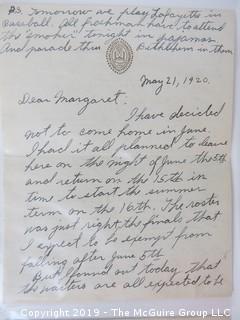 P.S. Tomorrow we play Lafayette in
Baseball. All freshman have to attend
the "smoker" tonight in pajamas
And parade thru Bethlehem in them
May 21, 1920.
Dear Margaret:
I have decided
not to come home in June.
I had it all planned to leave
here on the night of June the 5th
and return on the 15th in
time to start the summer
term on the 16th. The roster
was just right, the finals that
I expect to be exempt from
falling after June 5th
But found out today that
the waiters are all expected to be
Copyright 2019 - The McGuire Group LLC